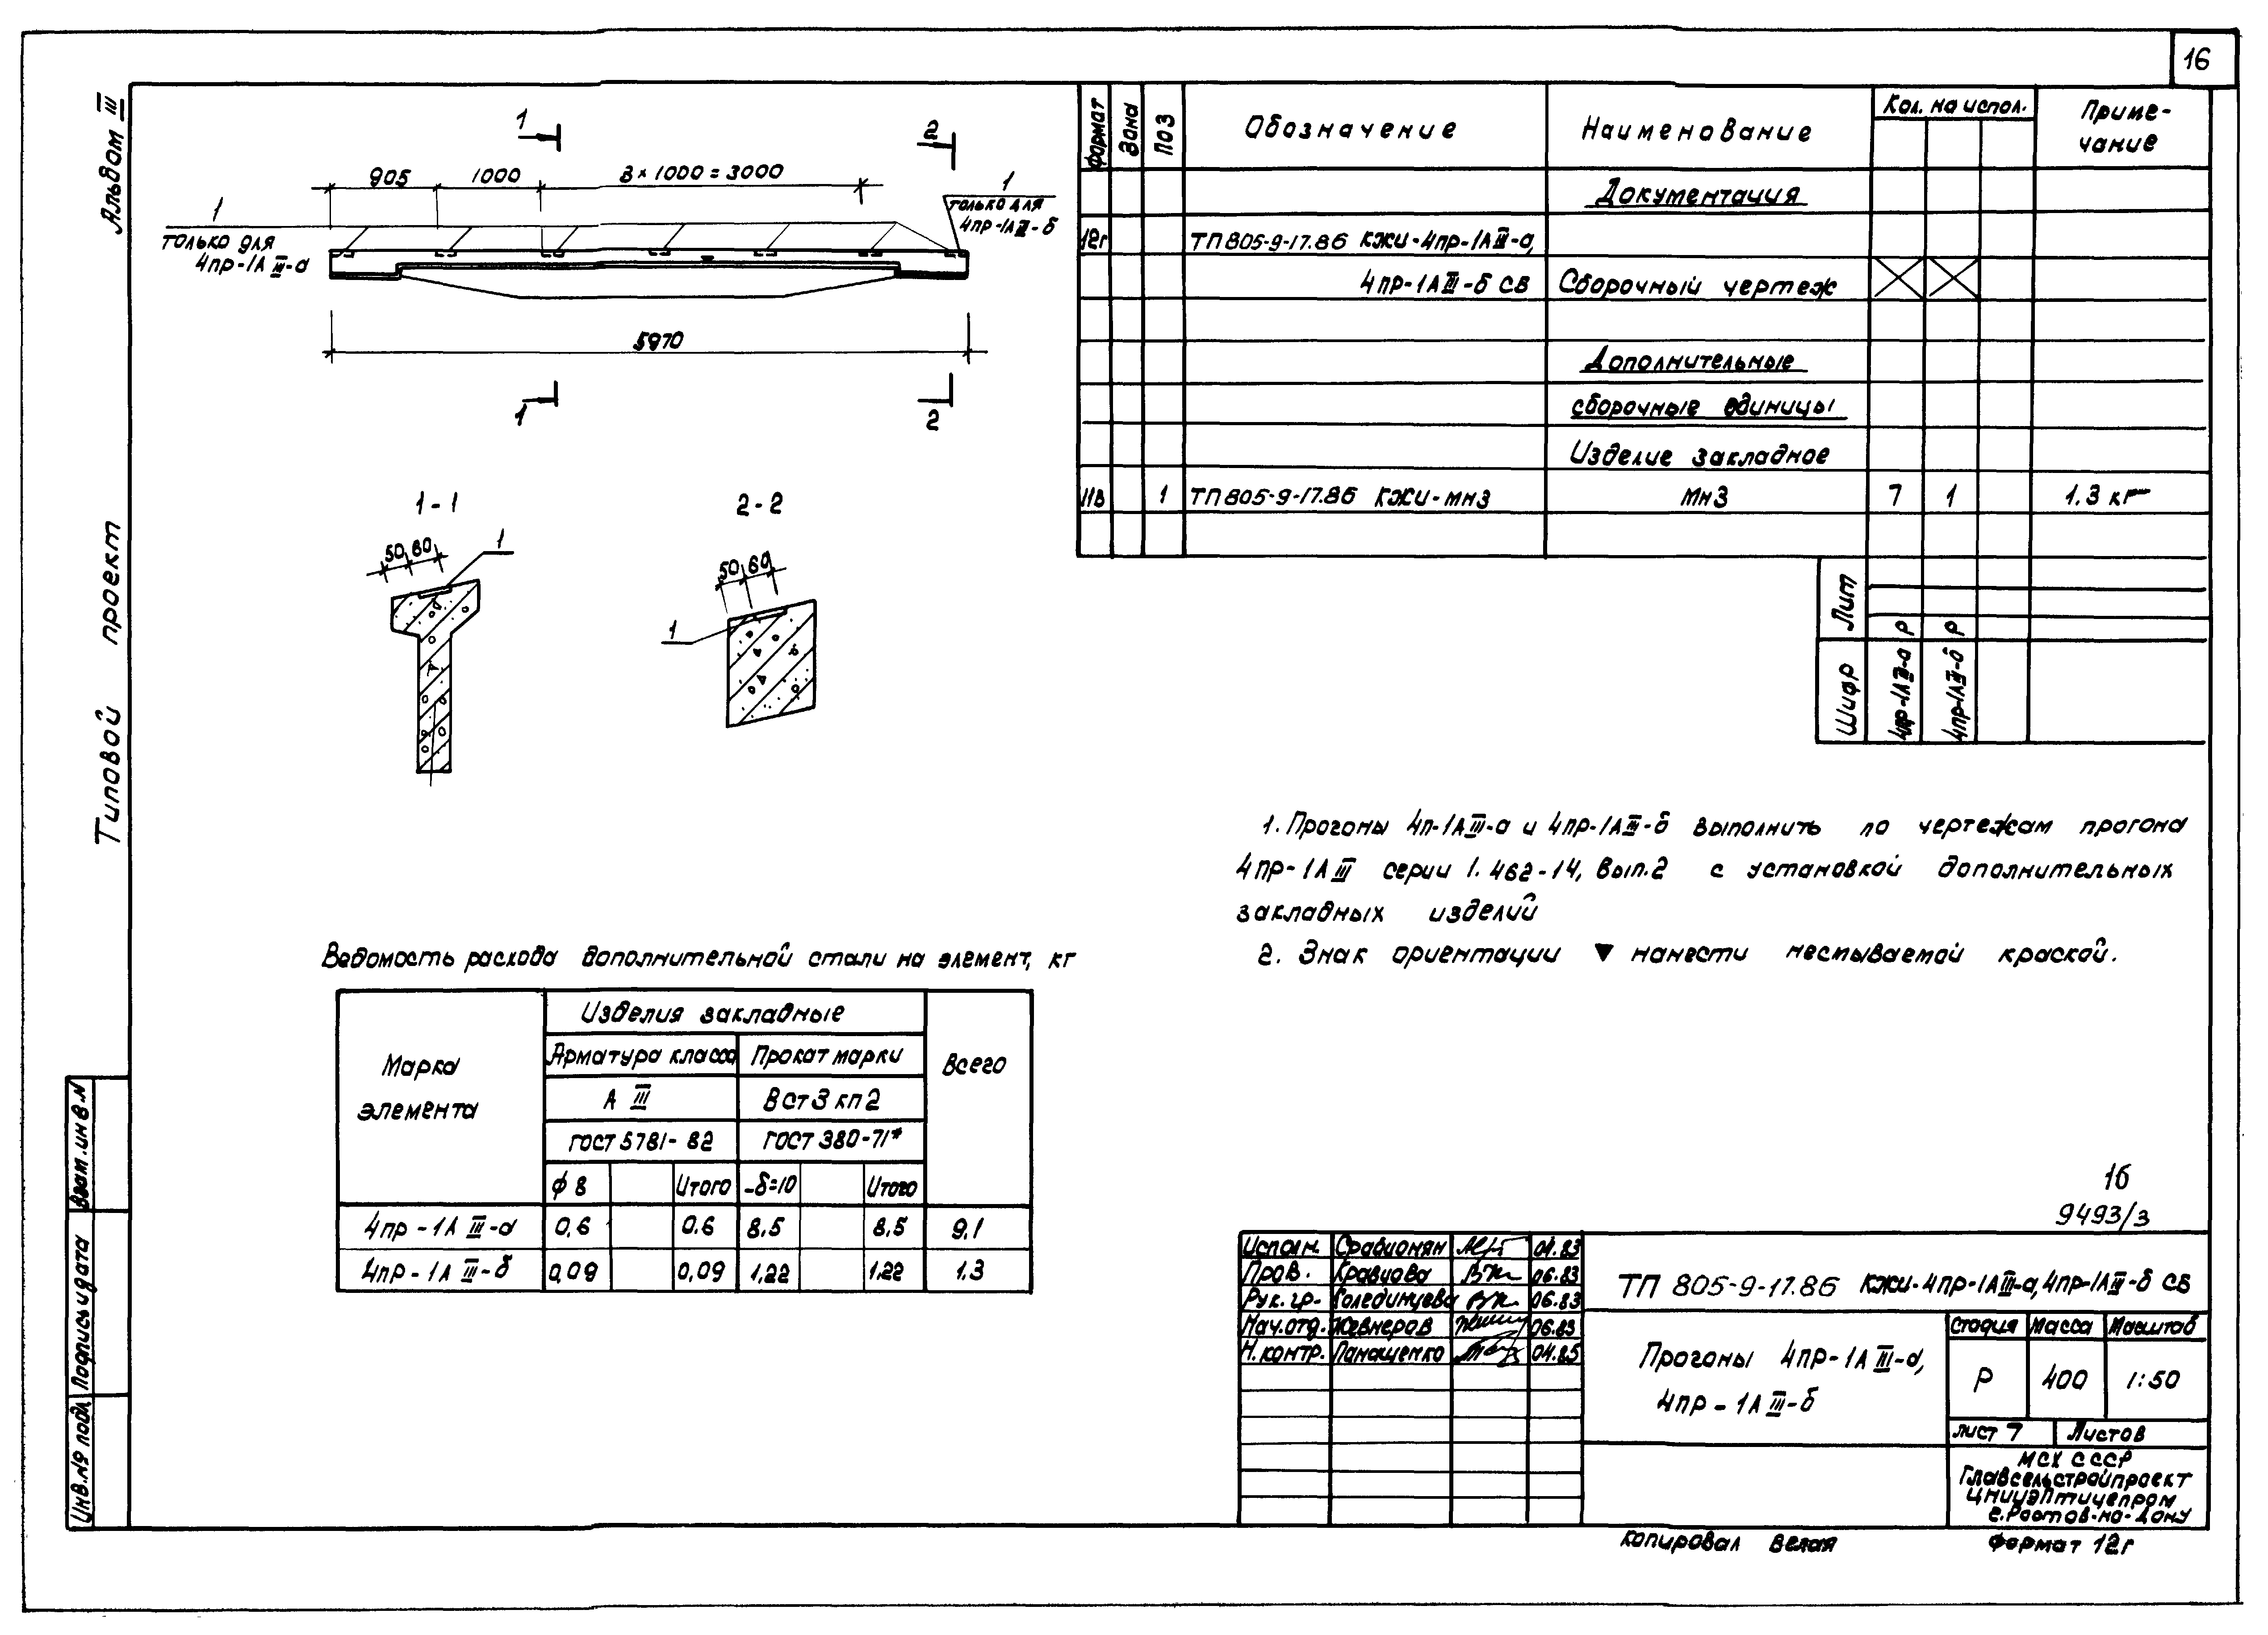 16
Альбом III
Типовой проект
1
2
905
1000
3×1000=3000
1
только для
4пр-1АIII-а
1
только для
4пр-1АIII-б
5970
1
2
1-1
50
60
1
2-2
50
60
1
Формат
Зона
Поз
Обозначение
Наименование
Кол. на испол.
Приме-
чание
Документация
12г ТП 805-9-17.86 КЖИ-4пр-1АIII-а,
4пр-1АIII-б СБ Сборочный чертеж
Дополнительные
сборочные единицы
Изделие закладное
11в 1 ТП 805-9-17.86 КЖИ-МН3 МН3 7 1 1.3 кг
Лит
Р
Р
Шифр
4пр-1АIII-а
4пр-1АIII-б
1. Прогоны 4п-1АIII-а и 4пр-1АIII-б выполнить по чертежам прогона
4пр-1АIII серии 1.462-14, вып.2 с установкой дополнительных
закладных изделий
2. Знак ориентации ▼ нанести несмываемой краской.
Ведомость расхода дополнительной стали на элемент, кг
Марка
элемента
Изделия закладные
Всего
Арматура класса
Прокат марки
А III
ВСт3кп2
ГОСТ 5781-82
ГОСТ 380-71*
ф 8
Итого
-δ=10
Итого
4пр-1А III-а 0,6 0,6 8,5 8,5 9,1
4пр-1А III-б 0,09 0,09 1,22 1,22 1,3
16
9493/3
Исполн. Срабионян 04.83
Пров. Кравцова 06.83
Рук. гр.Голединцева 06.83
Нач. отд. Жевнеров 06.83
Н. контр. Панащенко 04.85
ТП 805-9-17.86 КЖИ-4пр-1АIII-а, 4пр-1АIII-б СБ
Прогоны 4пр-1АIII-а,
4пр-1АIII-б
Стадия Масса Масштаб
Р 400 1:50
Лист 7 Листов
МСХ СССР
Главсельстройпроект
ЦНИИЭПптицепром
г. Ростов-на-Дону
Копировал Белая
Формат 12г
Инв.№ подл.
Подпись и дата
Взам.инв.№